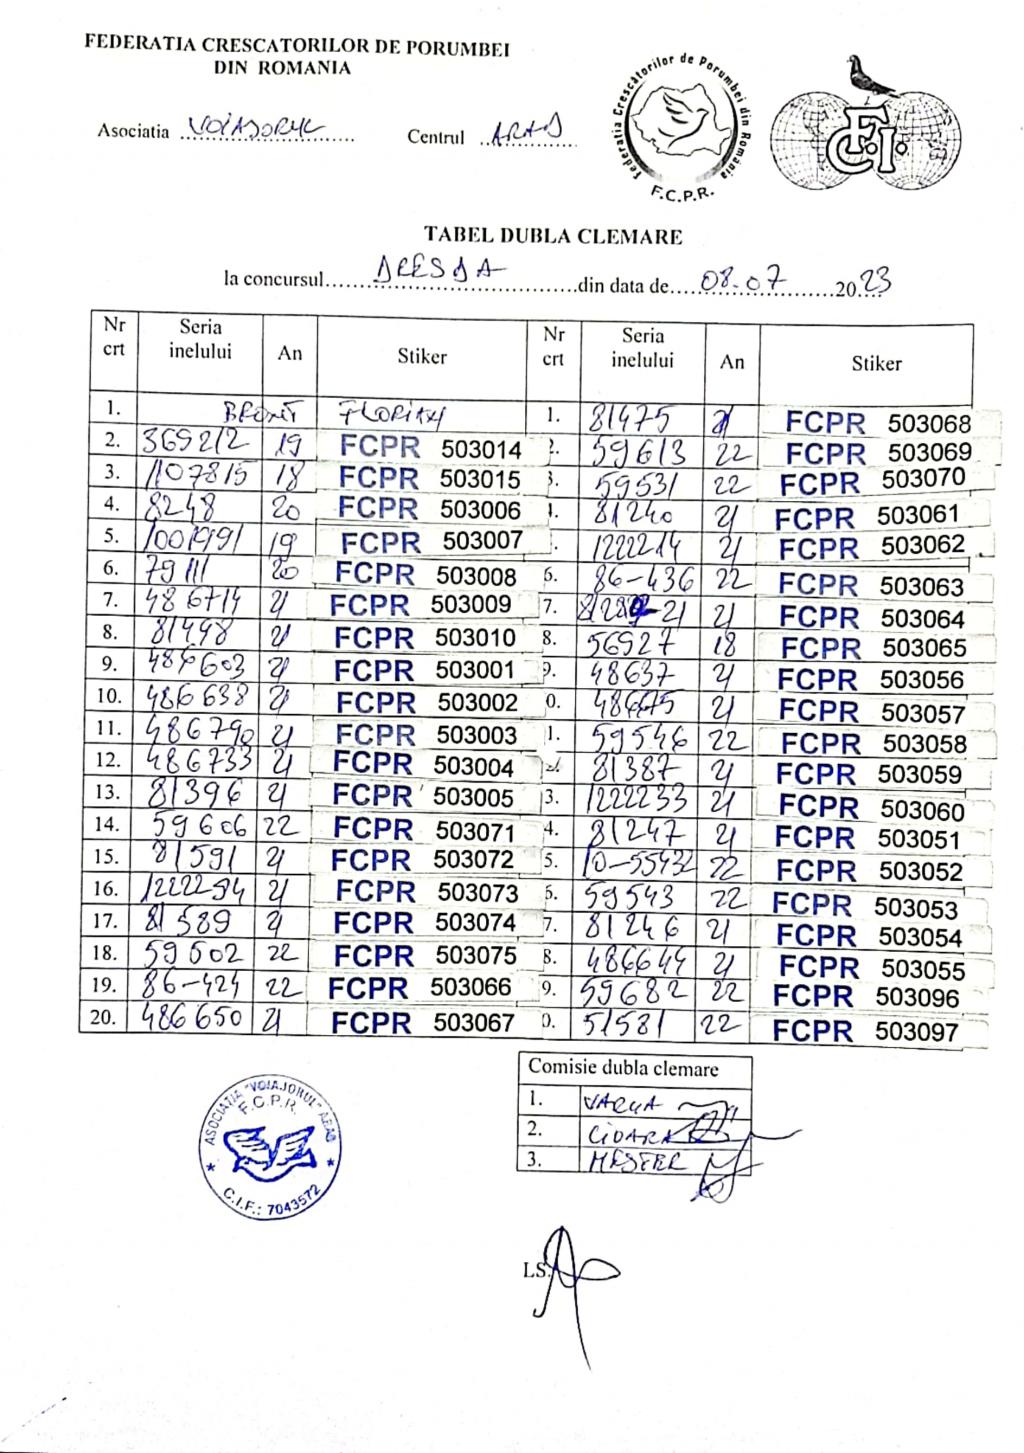 FEDERATIA CRESCATORILOR DE PORUMBEI
DIN ROMANIA
Asociatia VOIAJORUL Centrul ARAD
Federatia Crescătorilor de Porumbei din România
F.C.P.R.
F.C.I.
TABEL DUBLA CLEMARE
la concursul DRESDA din data de 08.07 2023
Nr crt Seria inelului An Stiker Nr crt Seria inelului An Stiker
1. BRONT FLORIAN 1. 81475 21 FCPR 503068
2. 369212 19 FCPR 503014 2. 59613 22 FCPR 503069
3. 1107815 18 FCPR 503015 3. 59531 22 FCPR 503070
4. 8248 20 FCPR 503006 4. 81240 21 FCPR 503061
5. 1001991 19 FCPR 503007 . 1222214 21 FCPR 503062
6. 79111 20 FCPR 503008 6. 86-436 22 FCPR 503063
7. 486714 21 FCPR 503009 7. 21 FCPR 503064
8. 81498 21 FCPR 503010 8. 56927 18 FCPR 503065
9. 486603 21 FCPR 503001 9. 48637 21 FCPR 503056
10. 486638 21 FCPR 503002 0. 486675 21 FCPR 503057
11. 486790 21 FCPR 503003 1. 59546 22 FCPR 503058
12. 486733 21 FCPR 503004 2. 81387 21 FCPR 503059
13. 81396 21 FCPR 503005 3. 1222233 21 FCPR 503060
14. 59606 22 FCPR 503071 4. 81247 21 FCPR 503051
15. 81591 21 FCPR 503072 5. 10-55432 22 FCPR 503052
16. 1222294 21 FCPR 503073 6. 59543 22 FCPR 503053
17. 81589 21 FCPR 503074 7. 81246 21 FCPR 503054
18. 59602 22 FCPR 503075 8. 486644 21 FCPR 503055
19. 86-424 22 FCPR 503066 9. 59682 22 FCPR 503096
20. 486650 21 FCPR 503067 0. 51581 22 FCPR 503097
Comisie dubla clemare
1. VARGA
2. CIOARA
3. MESTER
ASOCIATIA "VOIAJORUL" ARAD
F.C.P.R.
C.I.F.: 7043572
LS.